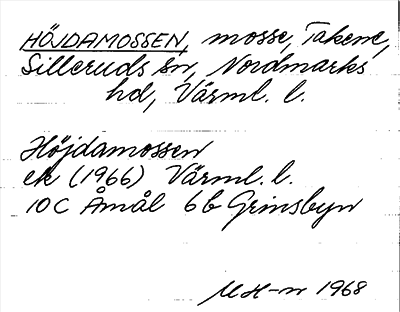 HÖJDAMOSSEN, mosse, Takene,
Silleruds sn, Nordmarks
hd, Värml. l.
Höjdamossen
ek (1966) Värml. l.
10C Åmål 6b Grinsbyn
MH-n 1968